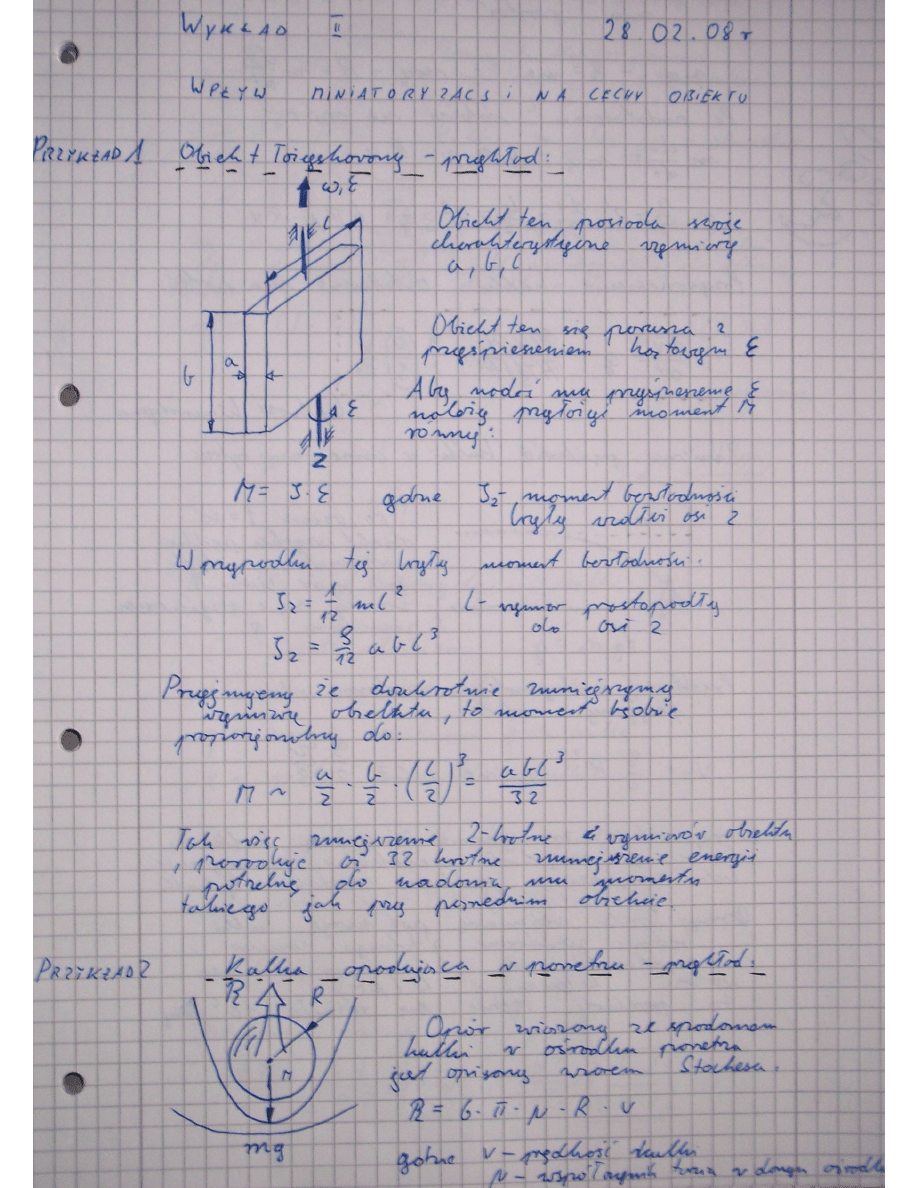 WYKŁAD II 28.02.08r
WPŁYW MINIATORYZACJI NA CECHY OBIEKTU
PRZYKŁAD 1 Obiekt Łożyskowany - przykład:
ω, ε
l
Obiekt ten posiada swoje
charakterystyczne wymiary
a, b, l
b
a
Obiekt ten się porusza z
przyśpieszeniem kątowym ε
Aby nadać mu przyśpieszenie ε
należy przyłożyć moment M
równy:
ε
Z
M = J · ε gdzie Jz - moment bezwładności
bryły wzdłuż osi z
W przypadku tej bryły moment bezwładności:
Jz = 1/12 ml² l - wymiar prostopadły
do osi z
Jz = ρ/12 a b l³
Przyjmujemy że dwukrotnie zmniejszymy
wymiary obiektu, to moment będzie
proporcjonalny do:
M ~ a/2 · b/2 · (l/2)³ = abl³/32
Tak więc zmniejszenie 2-krotne wymiarów obiektu
, powoduje aż 32 krotne zmniejszenie energii
potrzebnej do nadania mu momentu
takiego jak przy poprzednim obiekcie.
PRZYKŁAD 2 Kulka opadająca w powietrzu - przykład:
R R
m
mg
Opór związany ze spadaniem
kulki w ośrodku powietrza
jest opisany wzorem Stockesa.
R = 6 · π · μ · R · v
gdzie v - prędkość kulki
μ - współczynnik tarcia w danym ośrodku